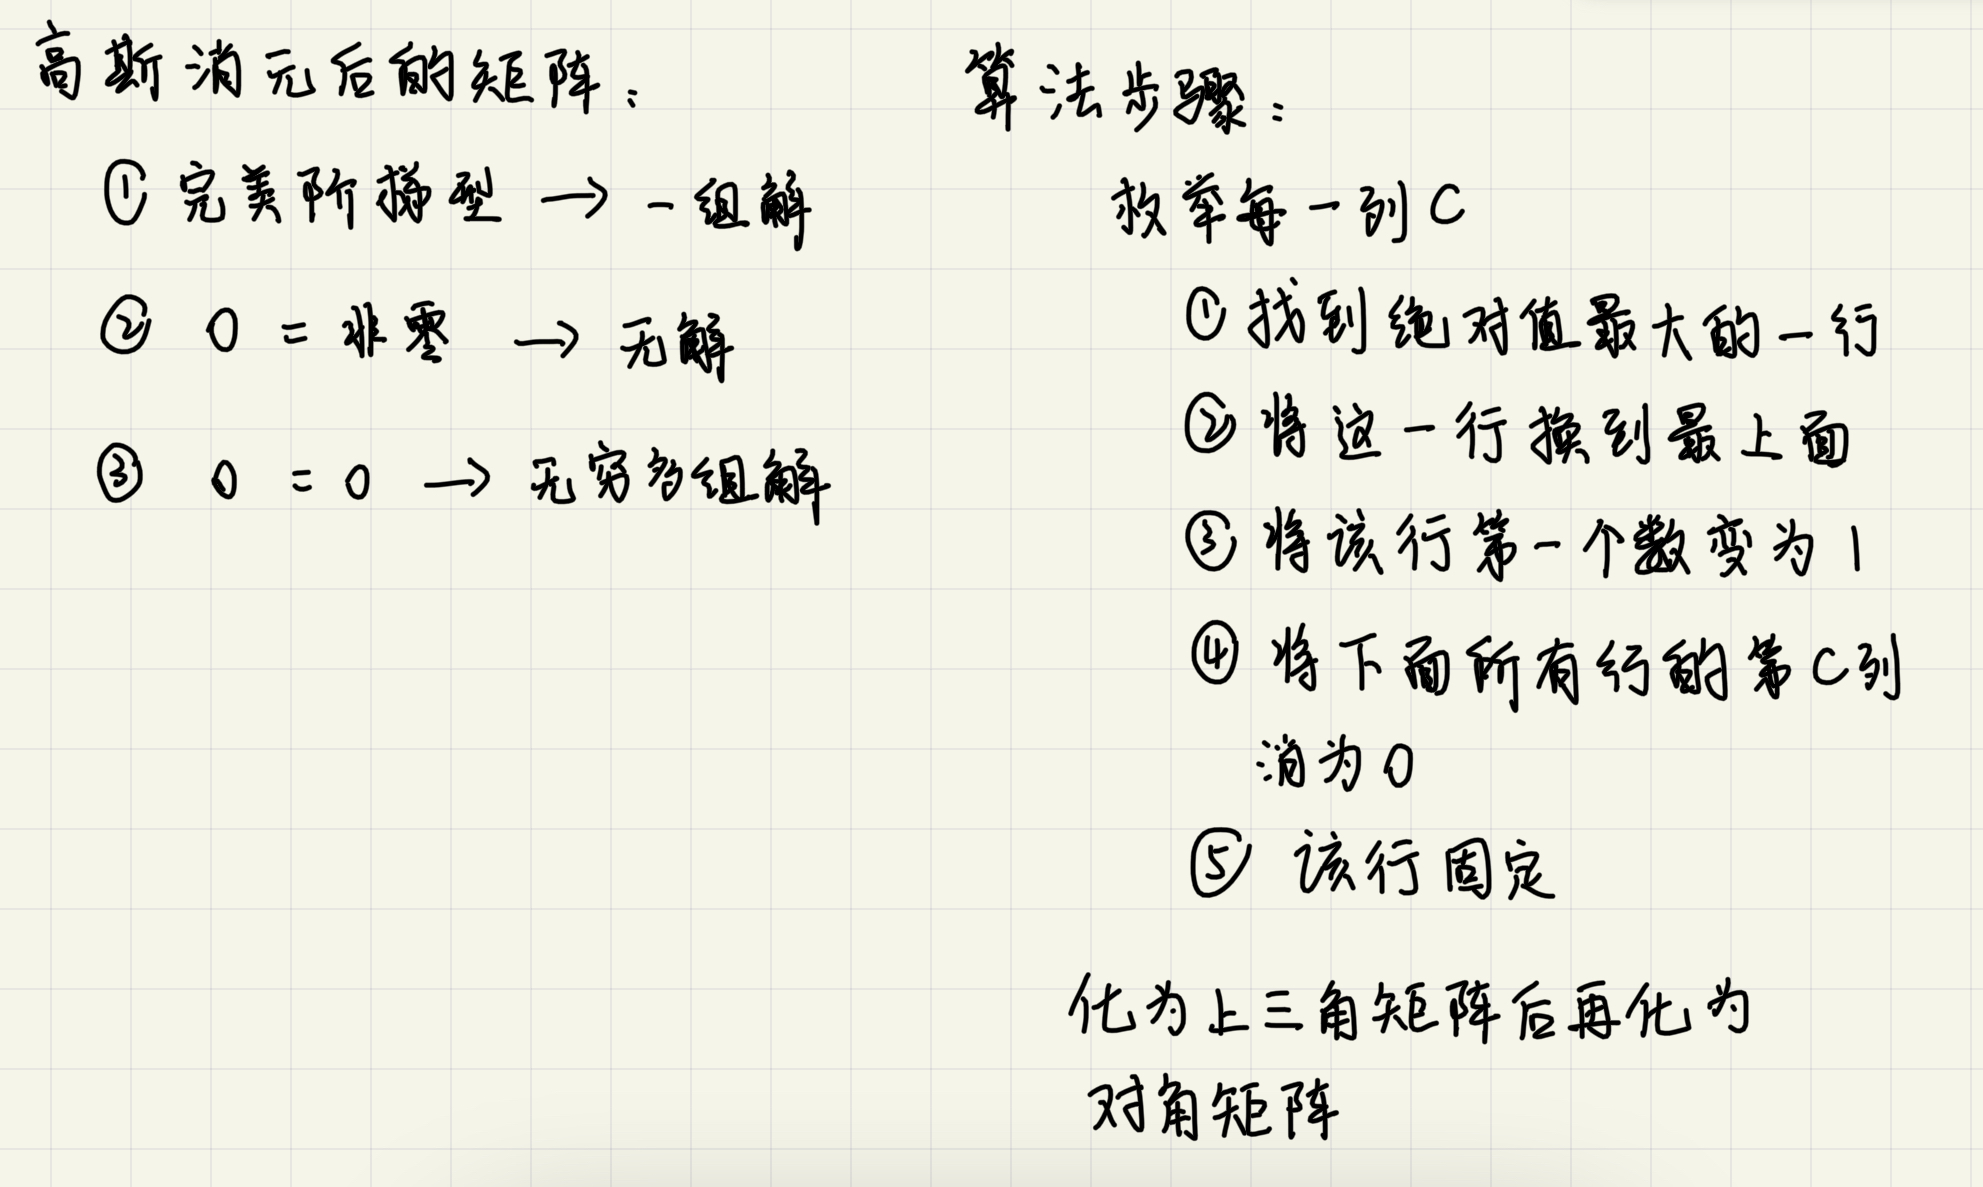 高斯消元后的矩阵：
① 完美阶梯型 → 一组解
② 0 = 非零 → 无解
③ 0 = 0 → 无穷多组解
算法步骤：
枚举每一列 C
① 找到绝对值最大的一行
② 将这一行换到最上面
③ 将该行第一个数变为 1
④ 将下面所有行的第 C 列
消为 0
⑤ 该行固定
化为上三角矩阵后再化为
对角矩阵